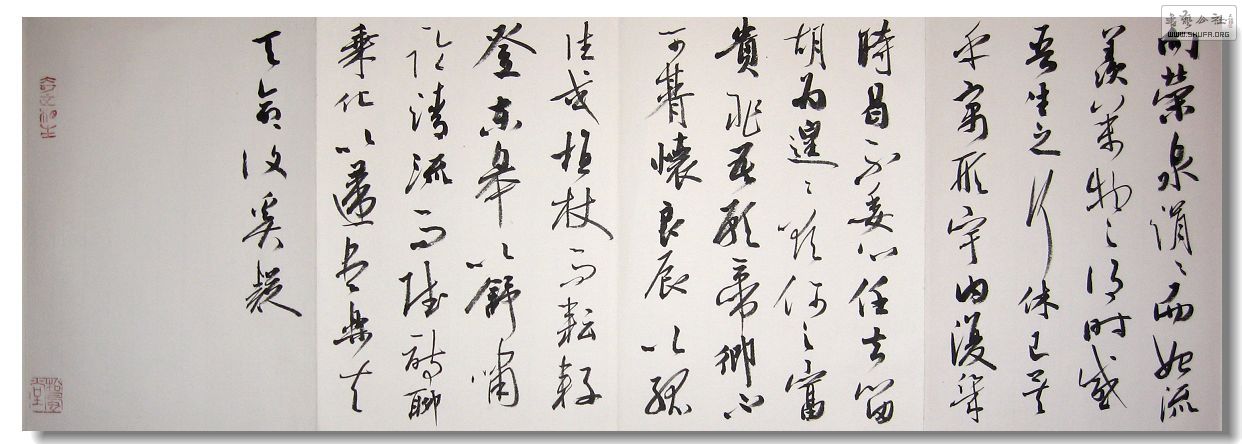 向榮泉涓々而始流
羨萬物之得時感
吾生之行休已矣
乎寓形宇内復幾
時曷不委心任去留
胡為遑々欲何之富
貴非吾願帝鄉不
可期懷良辰以孤
往或植杖而耘耔
登東皋以舒嘯
臨清流而賦詩聊
乘化以歸盡樂夫
天命復奚疑
书艺公社
WWW.SHUFA.ORG